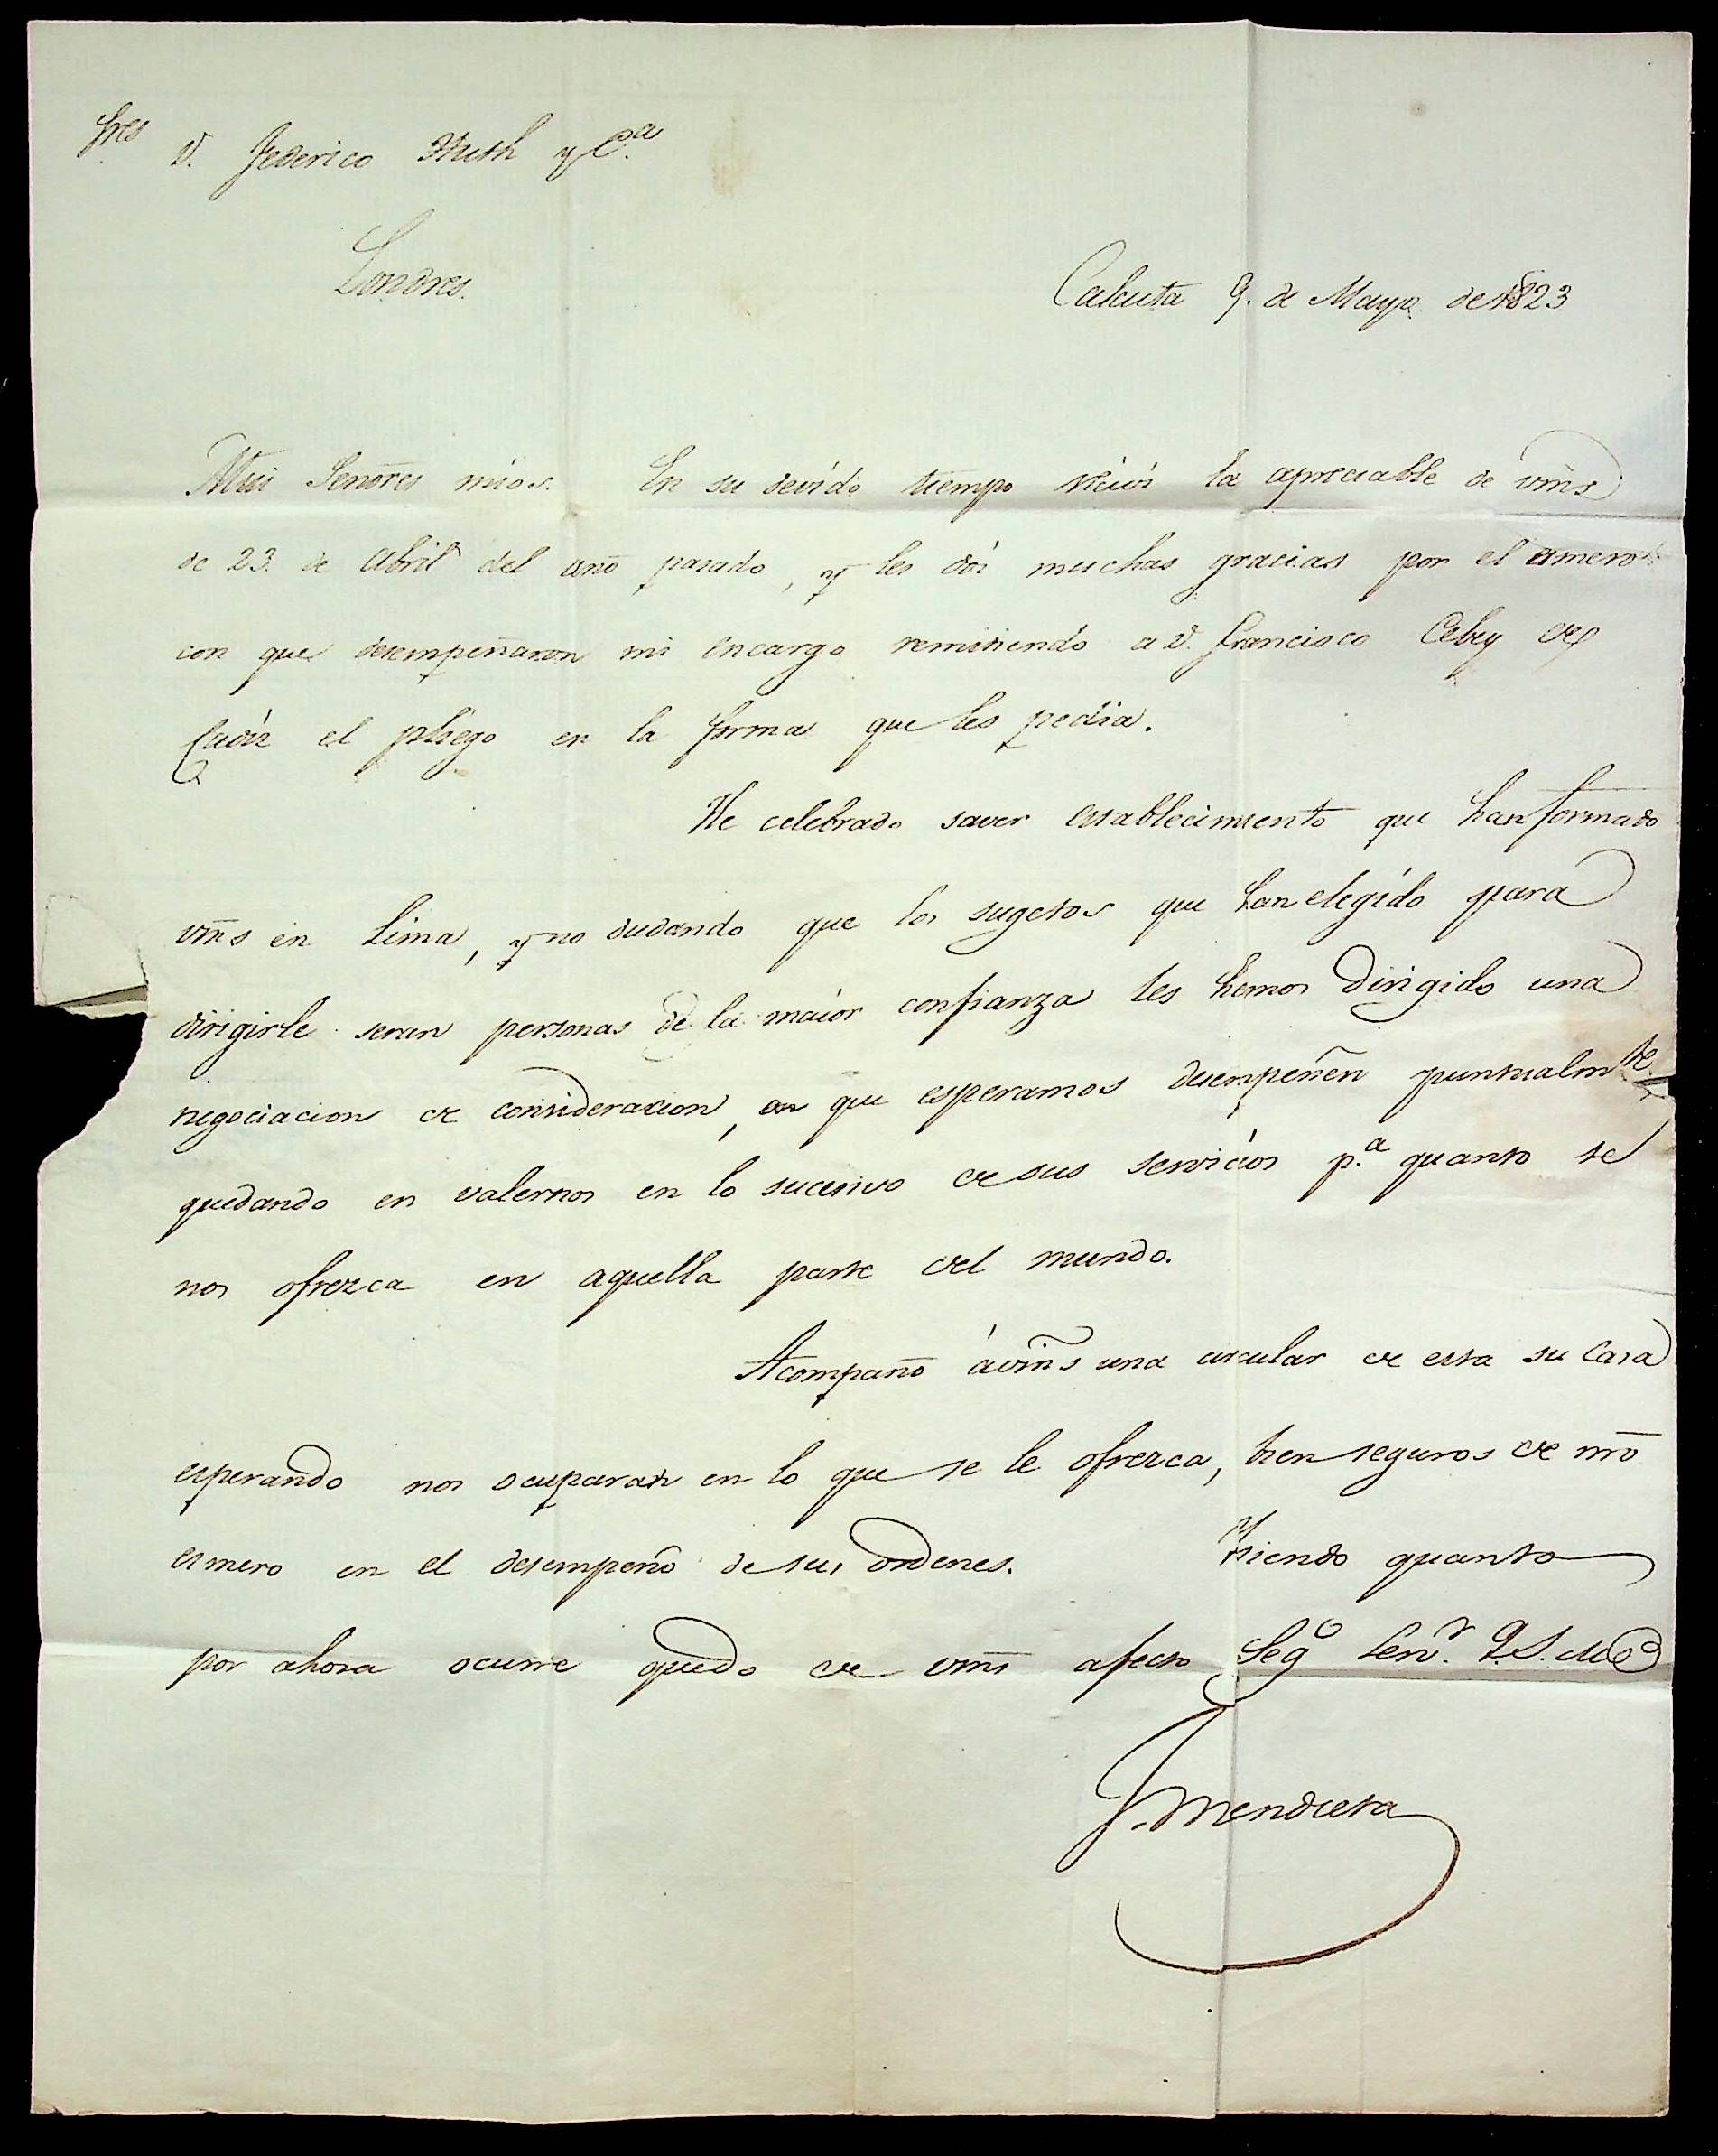 Sres D. Federico Huth y C.a
Londres.
Calcuta 9. de Mayo de 1823
Mui Señores mios. En su devido tiempo recivi la apreciable de vm̃s
de 23. de Abril del año pasado, y les doi muchas gracias por el esmero
con que desempeñaron mi encargo remitiendo a D. Francisco de
Cadiz el pliego en la forma que les pedia.
He celebrado saver establecimiento que han formado
vm̃s en Lima, y no dudando que los sugetos que han elegido para
dirigirle seran personas de la maior confianza les hemos dirigido una
negociacion de consideracion, en que esperamos desempeñen puntualmte
quedando en valernos en lo sucesivo de sus servicios p.a quanto se
nos ofrezca en aquella parte del mundo.
Acompaño á vm̃s una circular de esta su Casa
esperando nos ocuparan en lo que se le ofrezca, bien seguros de nr̃o
esmero en el desempeño de sus ordenes. Siendo quanto
por ahora ocurre quedo de vm̃s afecto Sego Serv.r Q.S.M.B
J. Mendieta